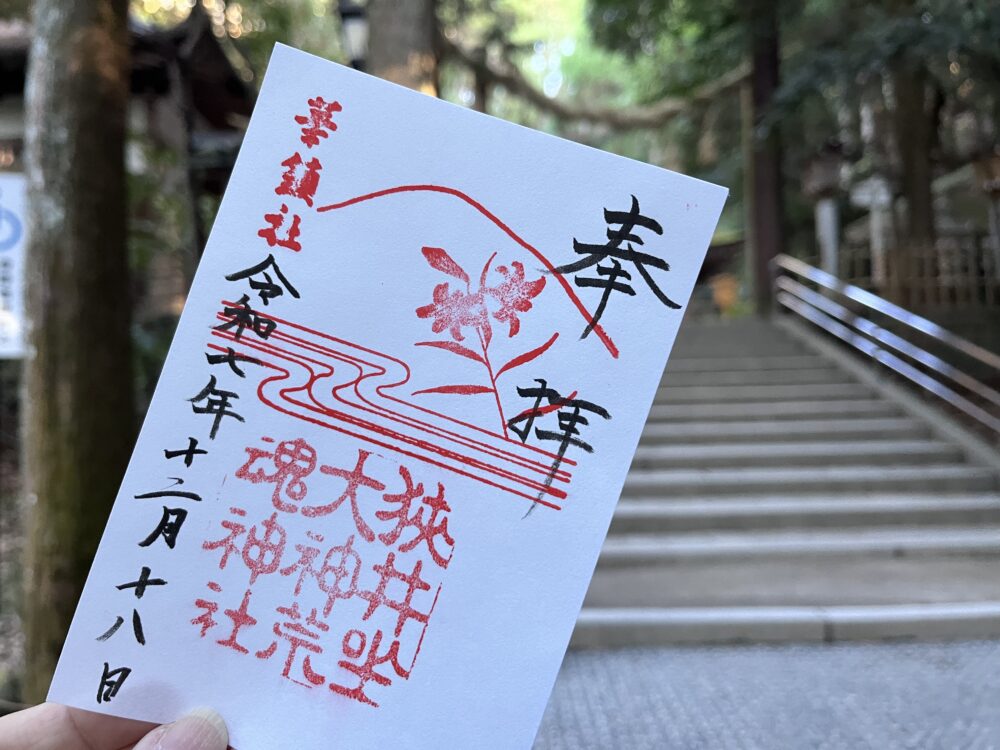 奉拝
狭井坐
大神荒
魂神社
華鎮社
令和七年十二月十八日